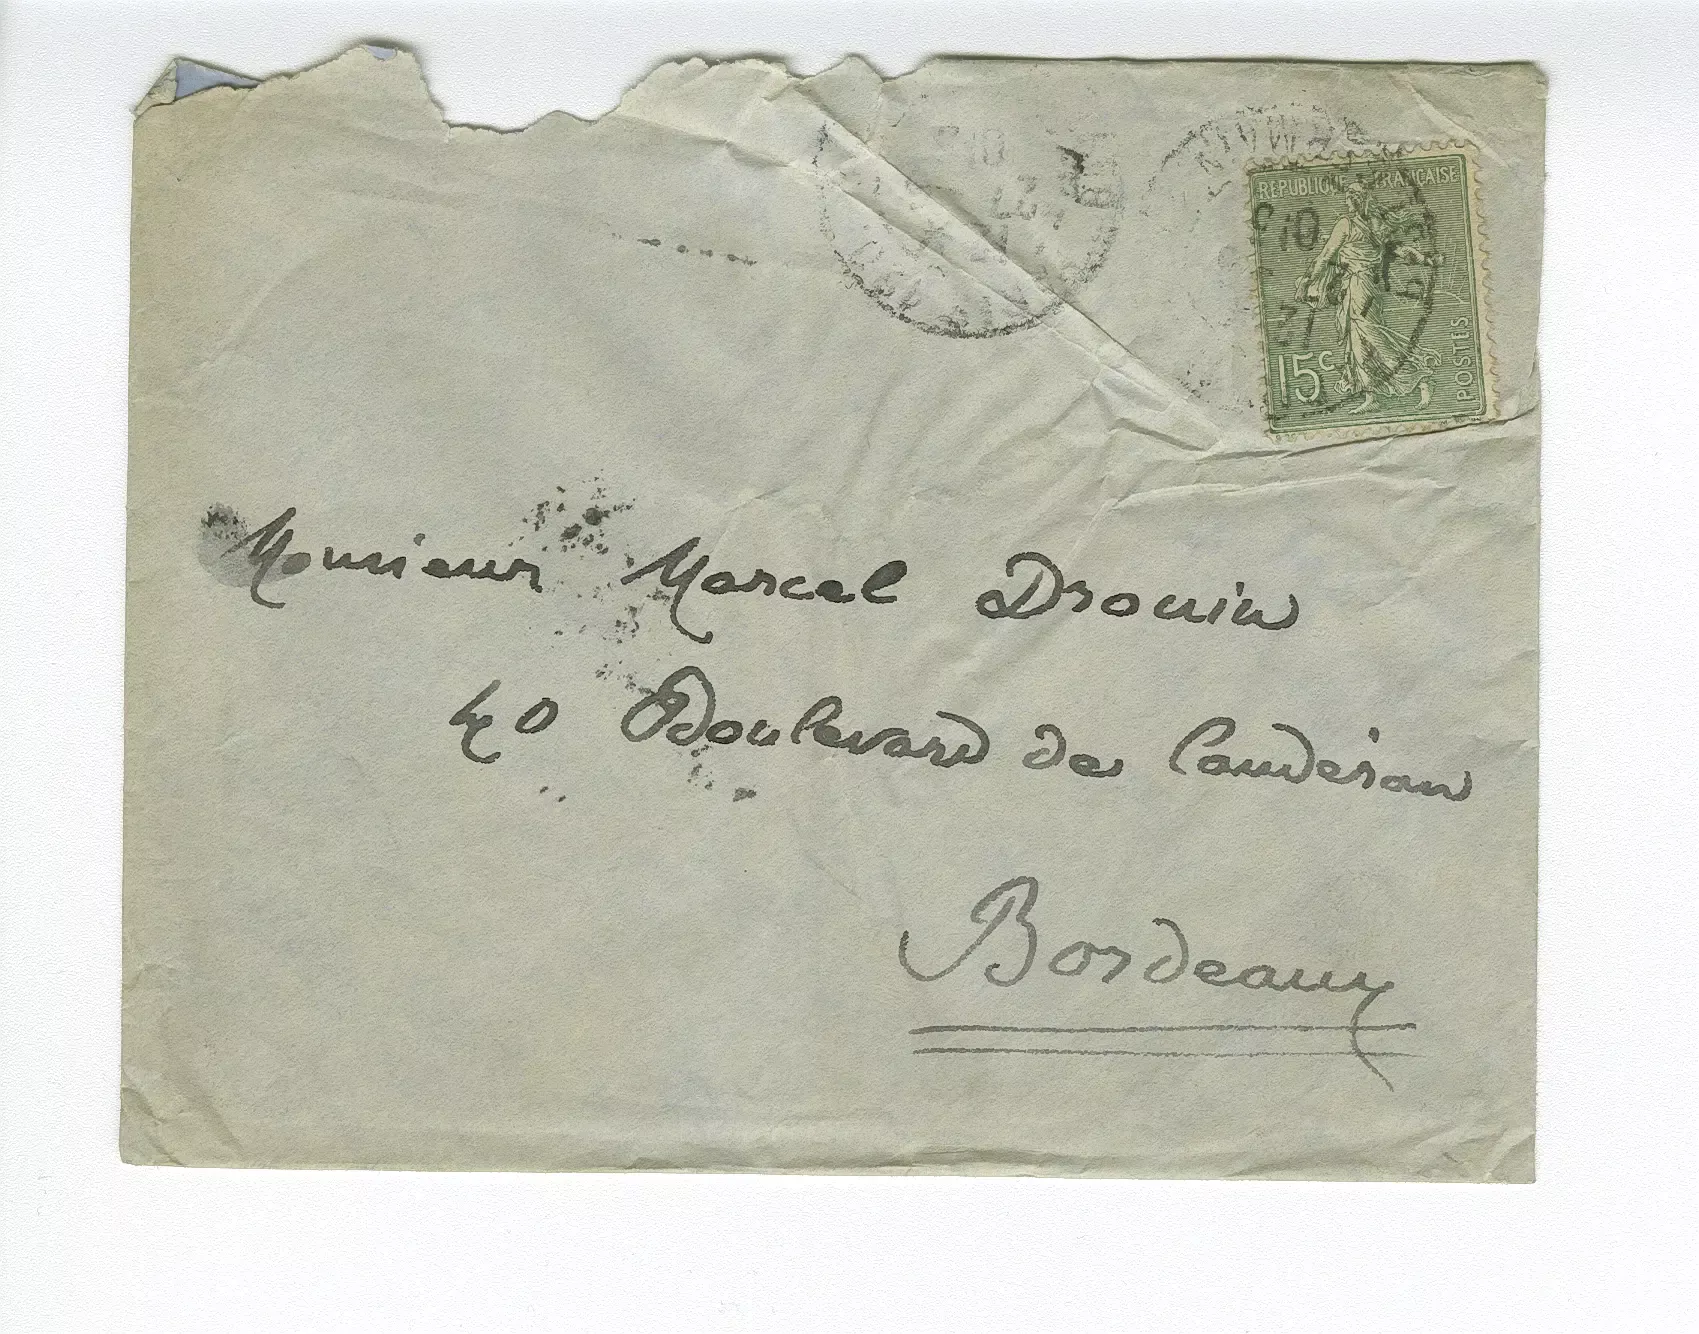 RÉPUBLIQUE FRANÇAISE
15c
POSTES
Monsieur Marcel Drouin
40 Boulevard de Caudéran
Bordeaux